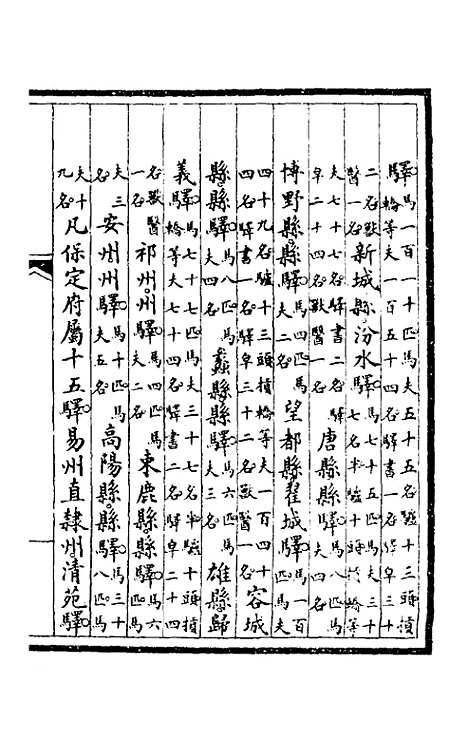 驛馬一百一十匹馬夫五十五名驢十三頭槓轎等夫一百五十四名驛書一名驛皂三十
二名獸醫一名新城縣汾水驛馬七十五匹馬夫三十七名半驢十頭槓轎等
夫七十七名驛書二名驛皂二十四名獸醫一名唐縣縣驛馬八匹馬夫四名
博野縣縣驛馬四匹馬夫二名望都縣翟城驛馬一百匹馬夫
四十九名驢十三頭槓轎等夫一百四十四名驛書一名驛皂三十二名獸醫一名容城
縣縣驛馬八匹馬夫四名蠡縣縣驛馬六匹馬夫三名雄縣歸
義驛馬七十七匹馬夫三十七名半驢十頭槓轎等夫七十四名驛書二名驛皂二十四
名獸醫一名祁州州驛馬四匹馬夫二名束鹿縣縣驛馬六匹馬
夫三名安州州驛馬十匹馬夫五名高陽縣縣驛馬三十八匹馬
夫十九名凡保定府屬十五驛易州直隸州清苑驛